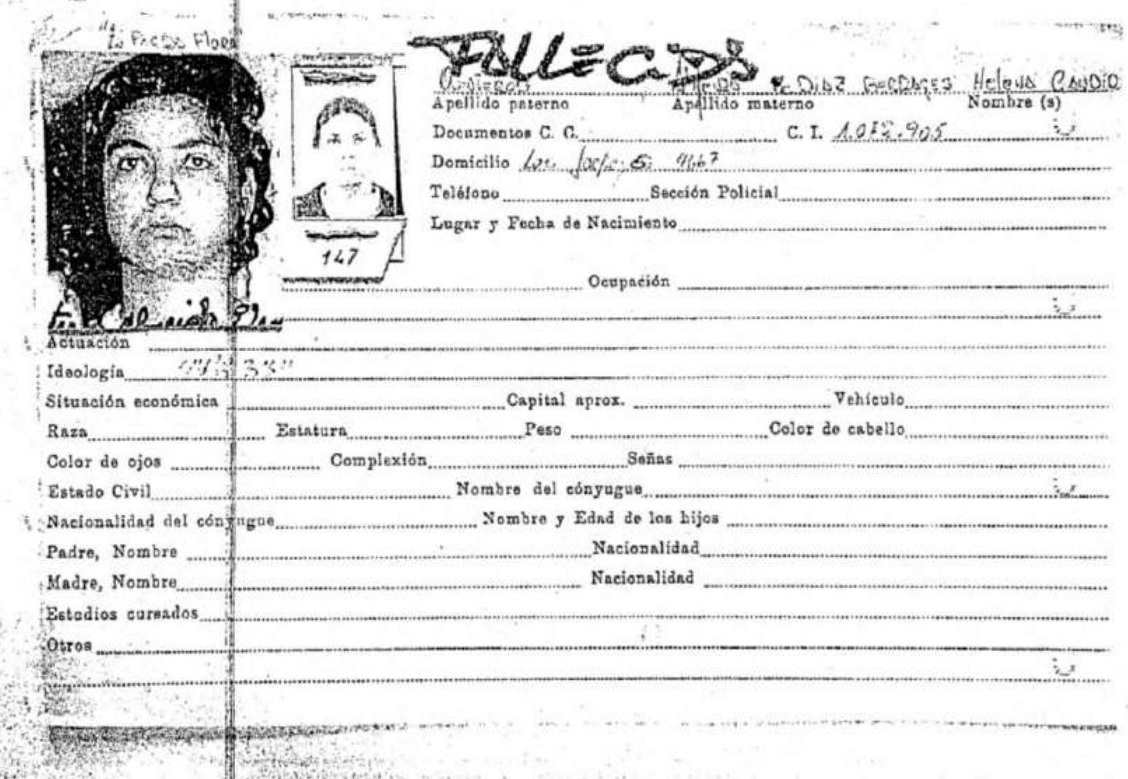 FALLECIDO
DIAZ Helena
Apellido paterno Apellido materno Nombre (s)
Documentos C. C. C. I. 1.072.905
Domicilio 4667
Teléfono Sección Policial
Lugar y Fecha de Nacimiento
147
Ocupación
Actuación
Ideología
Situación económica Capital aprox. Vehículo
Raza Estatura Peso Color de cabello
Color de ojos Complexión Señas
Estado Civil Nombre del cónyugue
Nacionalidad del cónyugue Nombre y Edad de los hijos
Padre, Nombre Nacionalidad
Madre, Nombre Nacionalidad
Estudios cursados
Otros